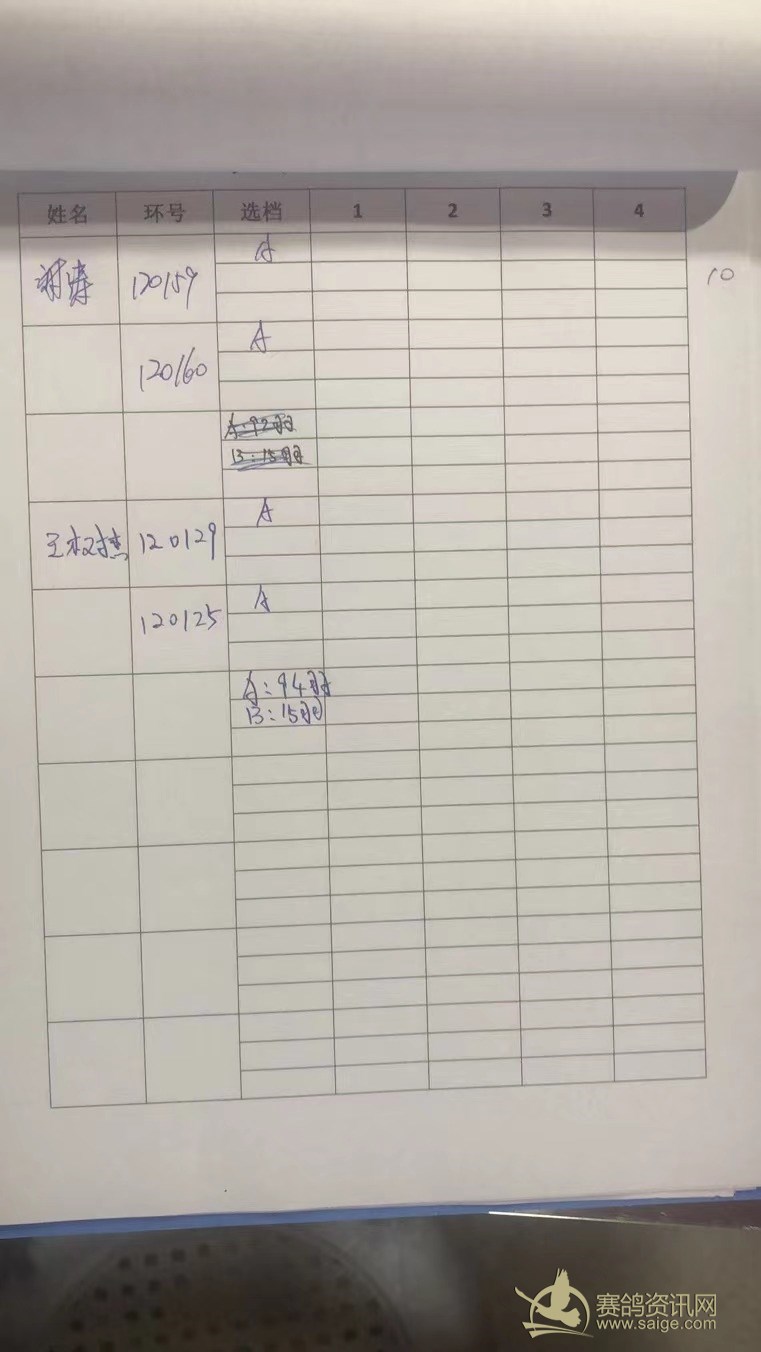 姓名 环号 选档 1 2 3 4
A
120159
10
A
120160
A:92羽
B:15羽
A
王权杰 120129
A
120125
A:94羽
B:15羽
赛鸽资讯网
www.saige.com